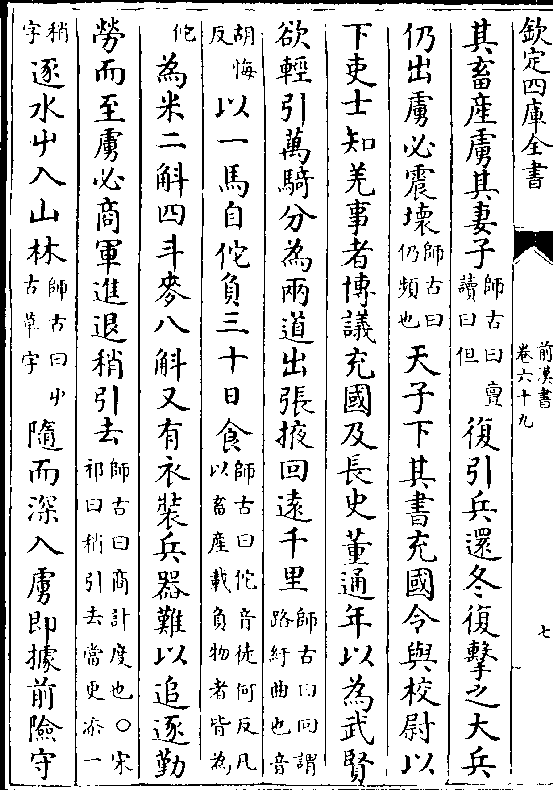 欽定四庫全書
前漢書
卷六十九
七
其畜産虜其妻子師古曰亶讀曰但復引兵還冬復擊之大兵
仍出虜必震壞師古曰仍頻也天子下其書充國令與校尉以
下吏士知羌事者博議充國及長史董通年以為武賢
欲輕引萬騎分為兩道出張掖回遠千里師古曰回謂路紆曲也音
胡悔反以一馬自佗負三十日食師古曰佗音徒何反凡以畜產載負物者皆為
佗為米二斛四斗麥八斛又有衣裝兵器難以追逐勤
勞而至虜必商軍進退稍引去師古曰商計度也○宋祁曰稍引去當更添一
稍字逐水屮入山林師古曰屮古草字隨而深入虜即據前險守